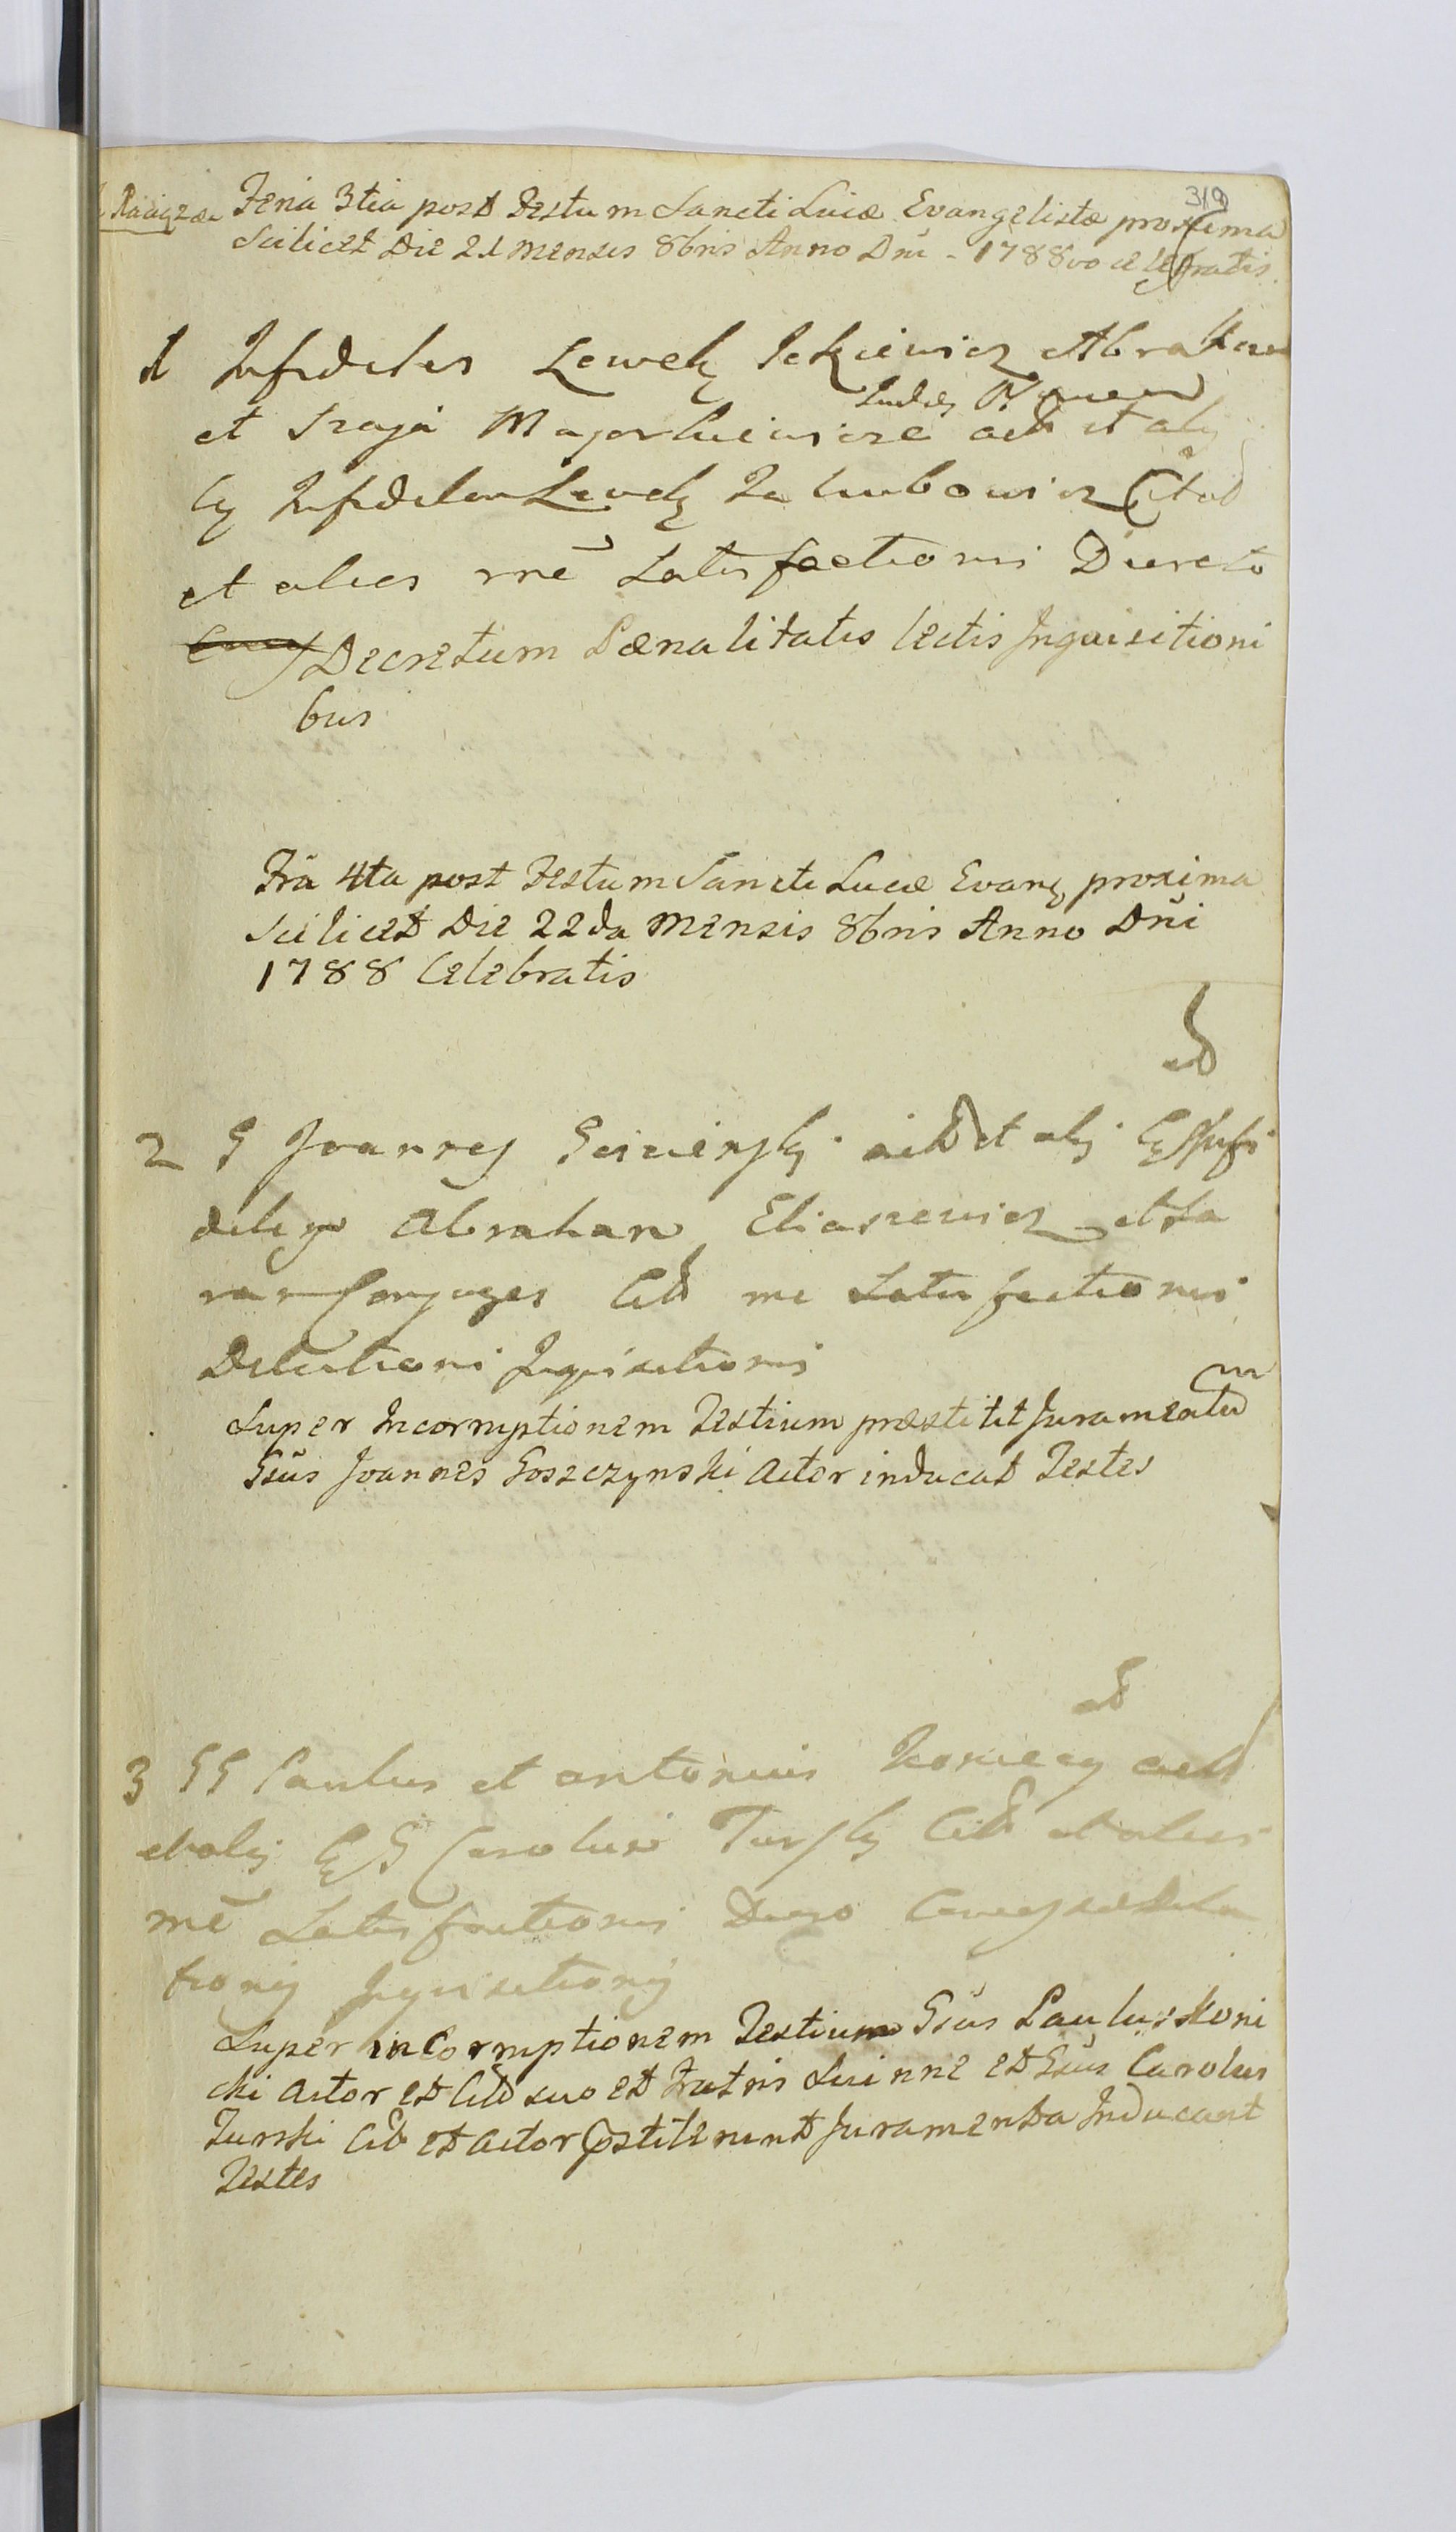 319
Feria 3tia post Festum Sancti Lucæ Evangelistæ proxima
Scilicet Die 21 Mensis 8bris Anno Dni 1788vo celebratis
1 Infideles Lewek Ickiewicz Abraham
et Szaja Majorkiewicze act et alij
Infidelem Lewek Jakubowicz Citat
et alios rne Satisfactionis Decreto
Decretum Pænalitatis lectis Inquisitioni
bus
Fra 4ta post Festum Sancti Lucæ Evang proxima
Scilicet Die 22da Mensis 8bris Anno Dni
1788 Celebratis
2 G Joannes act et alij Infi
deles Abraham Eliaszewicz et Sa
ram Conjuges Citt rne Satisfactionis
Inquisitionis
Super Incorruptionem Testium præstitit Juramentum
Gsus Joannes Goszczynski Actor inducat Testes
3 GG Paulus et Antonius act
et alij G Carolum Turski Citt et alios
rne Satisfactionis
tionis Inquisitionis
Super inCorruptionem Testium Gsus Paulus Koni
cki Actor et Citt suo et Fratris Luinne et Gsus Carolus
Turski Citt et Actor pstiterunt Juramenta Inducant
Testes